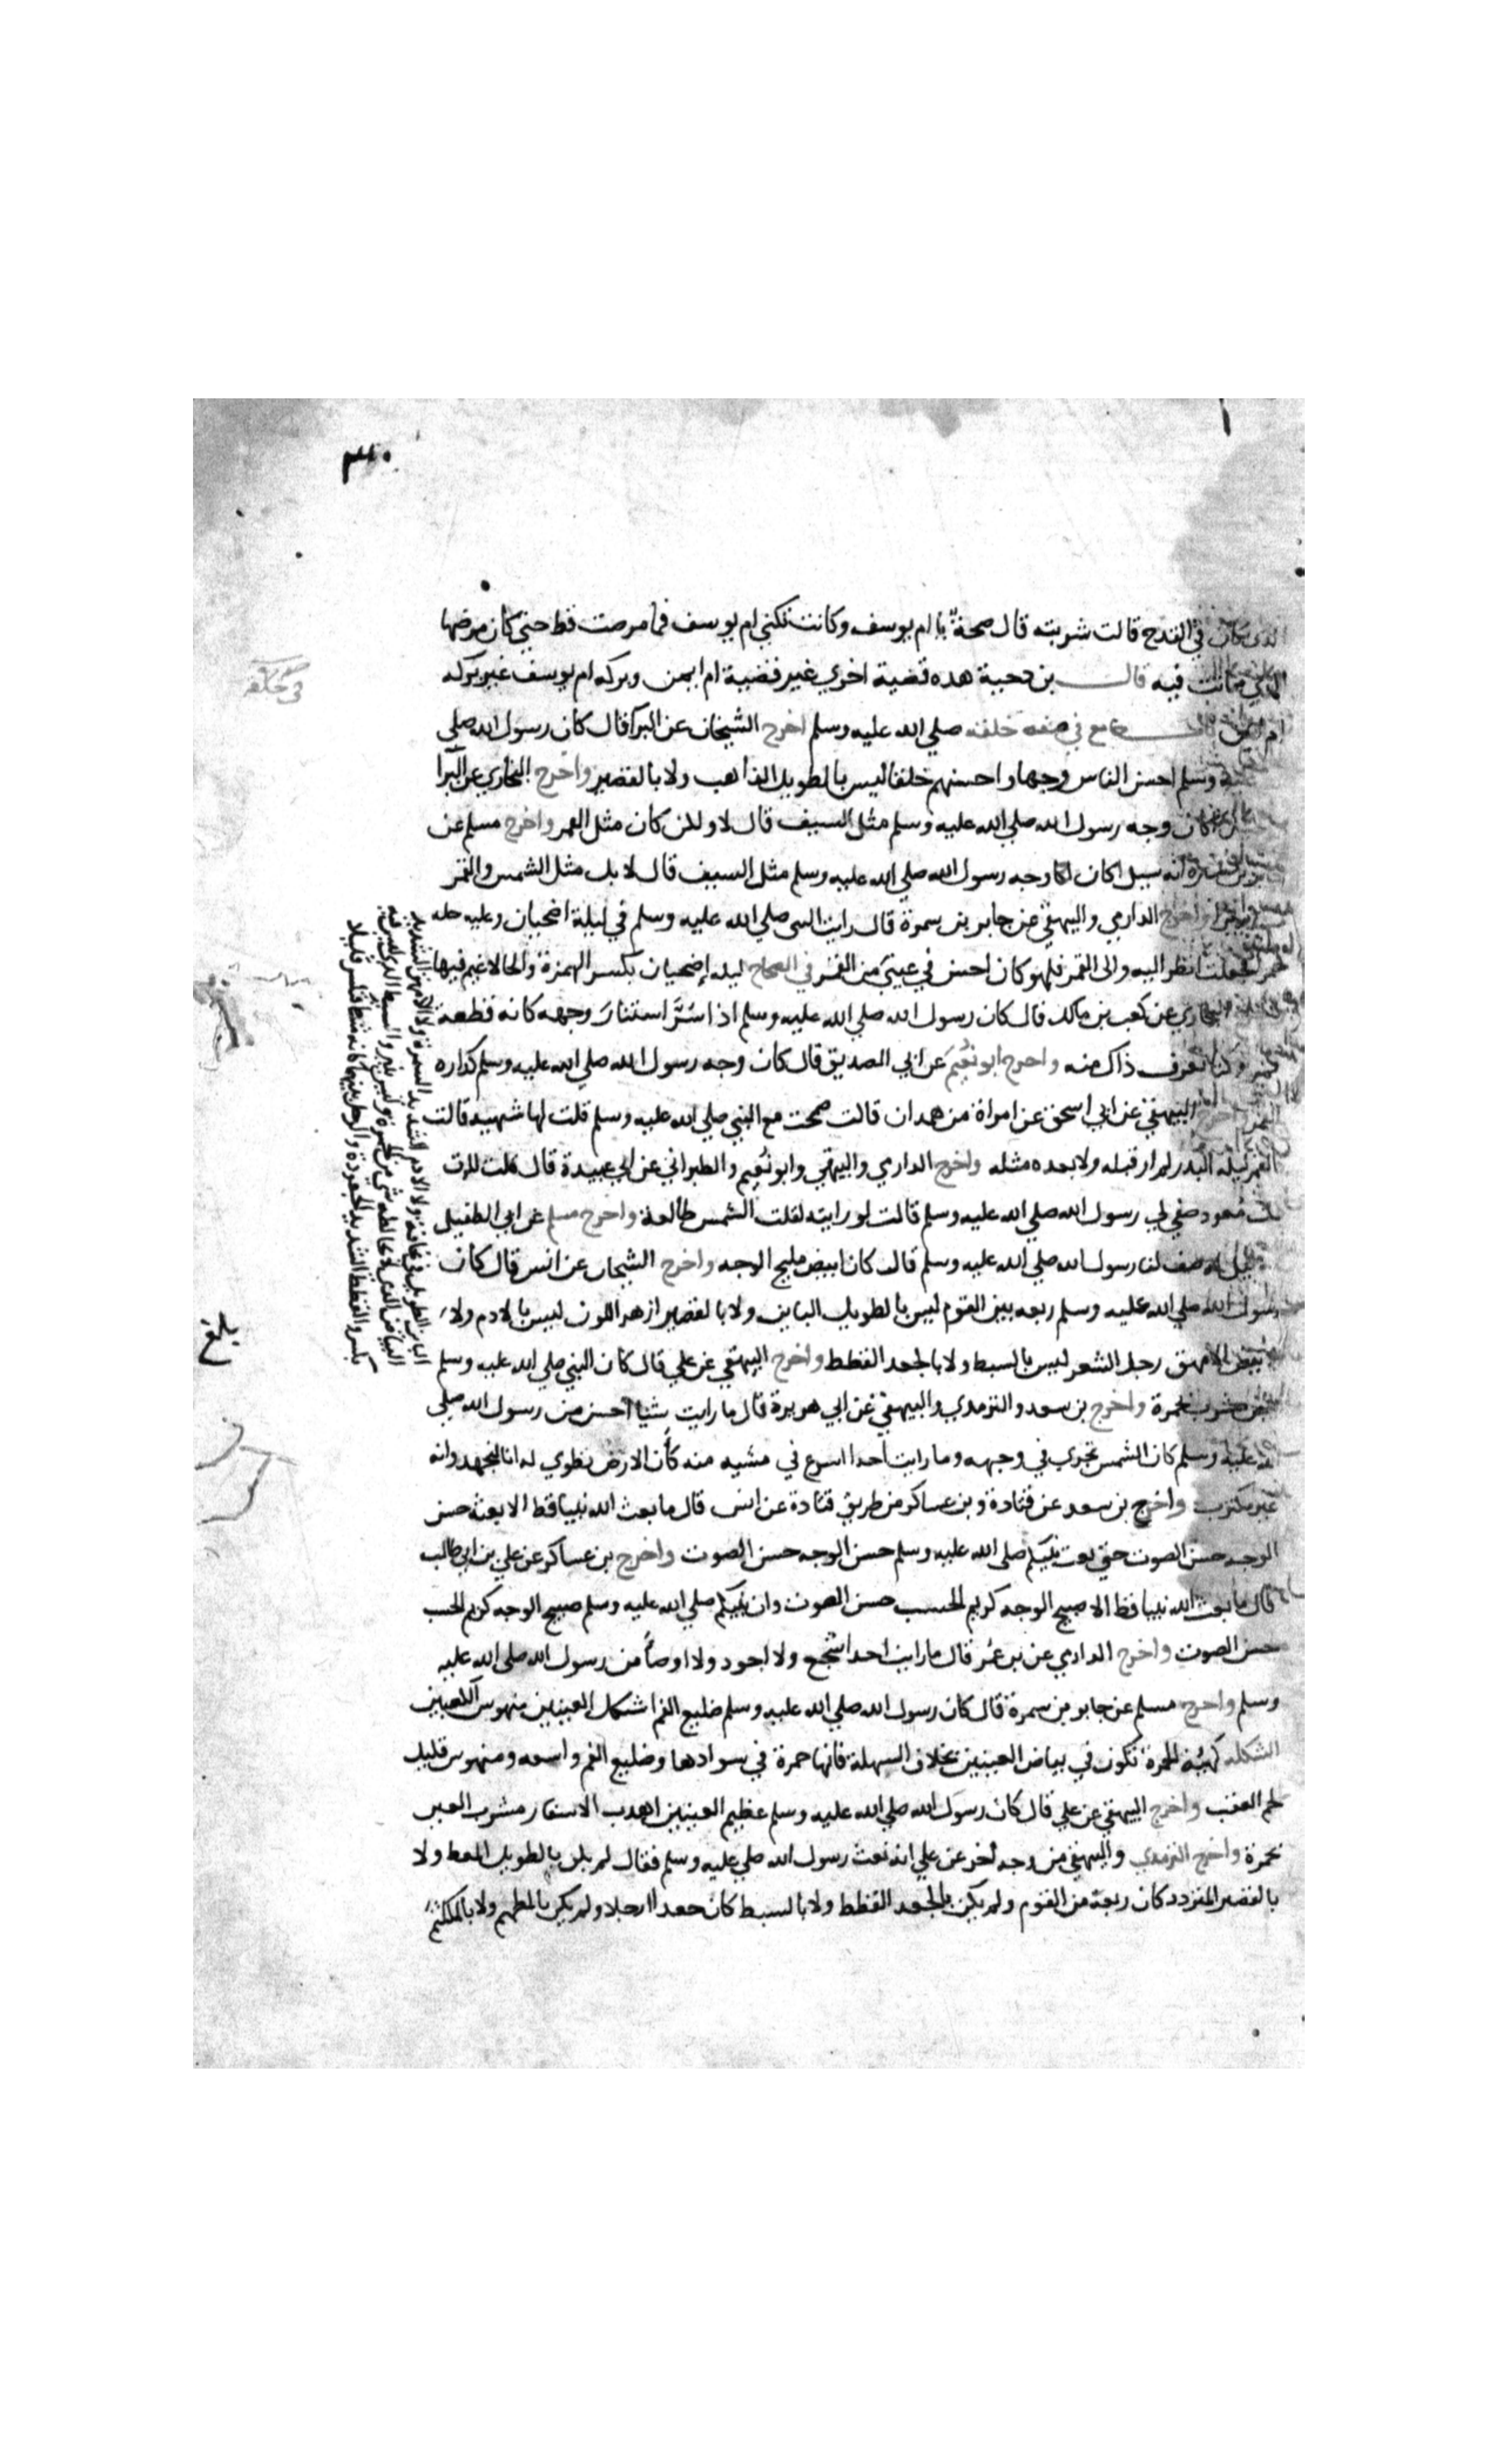 ٣٠
الذى كان في القدح قالت شربته قال صحة يا ام يوسف وكانت تكني ام يوسف فما مرضت قط حتي كان مرضها
الذي ماتت فيه قال بن دحية هذه قضية اخري غير قضية ام ايمن وبركه ام يوسف غير بركه
ام ايمن باب جامع في صفه خلقه صلي الله عليه وسلم اخرج الشيخان عن البرا قال كان رسول الله صلي
الله عليه وسلم احسن الناس وجها واحسنهم خلقا ليس بالطويل الذاهب ولا بالقصير واخرج البخاري عن البرا
كان وجه رسول الله صلي الله عليه وسلم مثل السيف قال لا ولكن كان مثل القمر واخرج مسلم عن
جابر بن سمرة انه سيل اكان وجه رسول الله صلي الله عليه وسلم مثل السيف قال لا بل مثل الشمس والقمر
مستديرا واخرج الدارمي والبيهقي عن جابر بن سمرة قال رايت النبي صلي الله عليه وسلم في ليلة اضحيان وعليه حله
حمر فجعلت انظر اليه والى القمر فلهو كان احسن في عيني من القمر في الصحاح ليله إضحيان بكسر الهمزة والحا لا غيم فيها
البخاري عن كعب بن مالك قال كان رسول الله صلي الله عليه وسلم اذا سُرَّ استنار وجهه كانه قطعة
قمر وكنا نعرف ذاك منه واخرج ابو نُعَيم عن ابي الصديق قال كان وجه رسول الله صلي الله عليه وسلم كداره
القمر واخرج البيهقي عن ابي اسحق عن امراة من همدان قالت حججت مع النبي صلي الله عليه وسلم قلت لها شبهيه قالت
القمر ليله البدر لم ار قبله ولا بعده مثله واخرج الدارمي والبيهقي وابو نُعَيم والطبراني عن ابي عبيدة قال قلت للربيع
بنت معود صفي لي رسول الله صلي الله عليه وسلم قالت لو رايته لقلت الشمس طالعة واخرج مسلم عن ابي الطفيل
قيل له صف لنا رسول الله صلي الله عليه وسلم قال كان ابيض مليح الوجه واخرج الشيخان عن انس قال كان
رسول الله صلي الله عليه وسلم ربعه بين القوم ليس بالطويل الباين ولا بالقصير ازهر اللون ليس بالادم ولا
بالابيض الامهق رجل الشعر ليس بالسبط ولا بالجعد القطط واخرج البيهقي عن علي قال كان النبي صلي الله عليه وسلم
ابيض مشرب بحمرة واخرج بن سعد والترمذي والبيهقي عن ابي هريرة قال ما رايت شيا احسن من رسول الله صلي
الله عليه وسلم كان الشمس تجري في وجهه وما رايت احدا اسرع في مشيه منه كأن الارض تطوي له انا لنجهد وانه
غير مكترث واخرج بن سعد عن قتادة وبن عساكر من طريق قتادة عن انس قال ما بعث الله نبيا قط الا بعثه حسن
الوجه حسن الصوت حتي بعث نبيكم صلي الله عليه وسلم حسن الوجه حسن الصوت واخرج بن عساكر عن علي بن ابي طالب
قال ما بعث الله نبيا قط الا صبيح الوجه كريم الحسب حسن الصوت وان نبيكم صلي الله عليه وسلم صبيح الوجه كريم الحسب
حسن الصوت واخرج الدارمي عن بن عمر قال ما رايت احدا اشجع ولا اجود ولا اوضأ من رسول الله صلي الله عليه
وسلم واخرج مسلم عن جابر بن سمرة قال كان رسول الله صلي الله عليه وسلم ضليع الفم اشكل العينين منهوس العقبين
الشكله كهيئة الحمرة تكون في بياض العينين بخلاف الشهلة فانها حمرة في سوادها وضليع الفم واسعه ومنهوس قليل
لحم العقب واخرج البيهقي عن علي قال كان رسول الله صلي الله عليه وسلم عظيم العينين اهدب الاشفار مشرب العين
بحمرة واخرج الترمذي والبيهقي من وجه اخر عن علي انه نعت رسول الله صلي عليه وسلم فقال لم يكن بالطويل الممغط ولا
بالقصير المتردد كان ربعة من القوم ولم يكن بالجعد القطط ولا بالسبط كان جعدا رجلا ولم يكن بالمطهم ولا بالمكلثم
صفه
في خلقه
بلغ